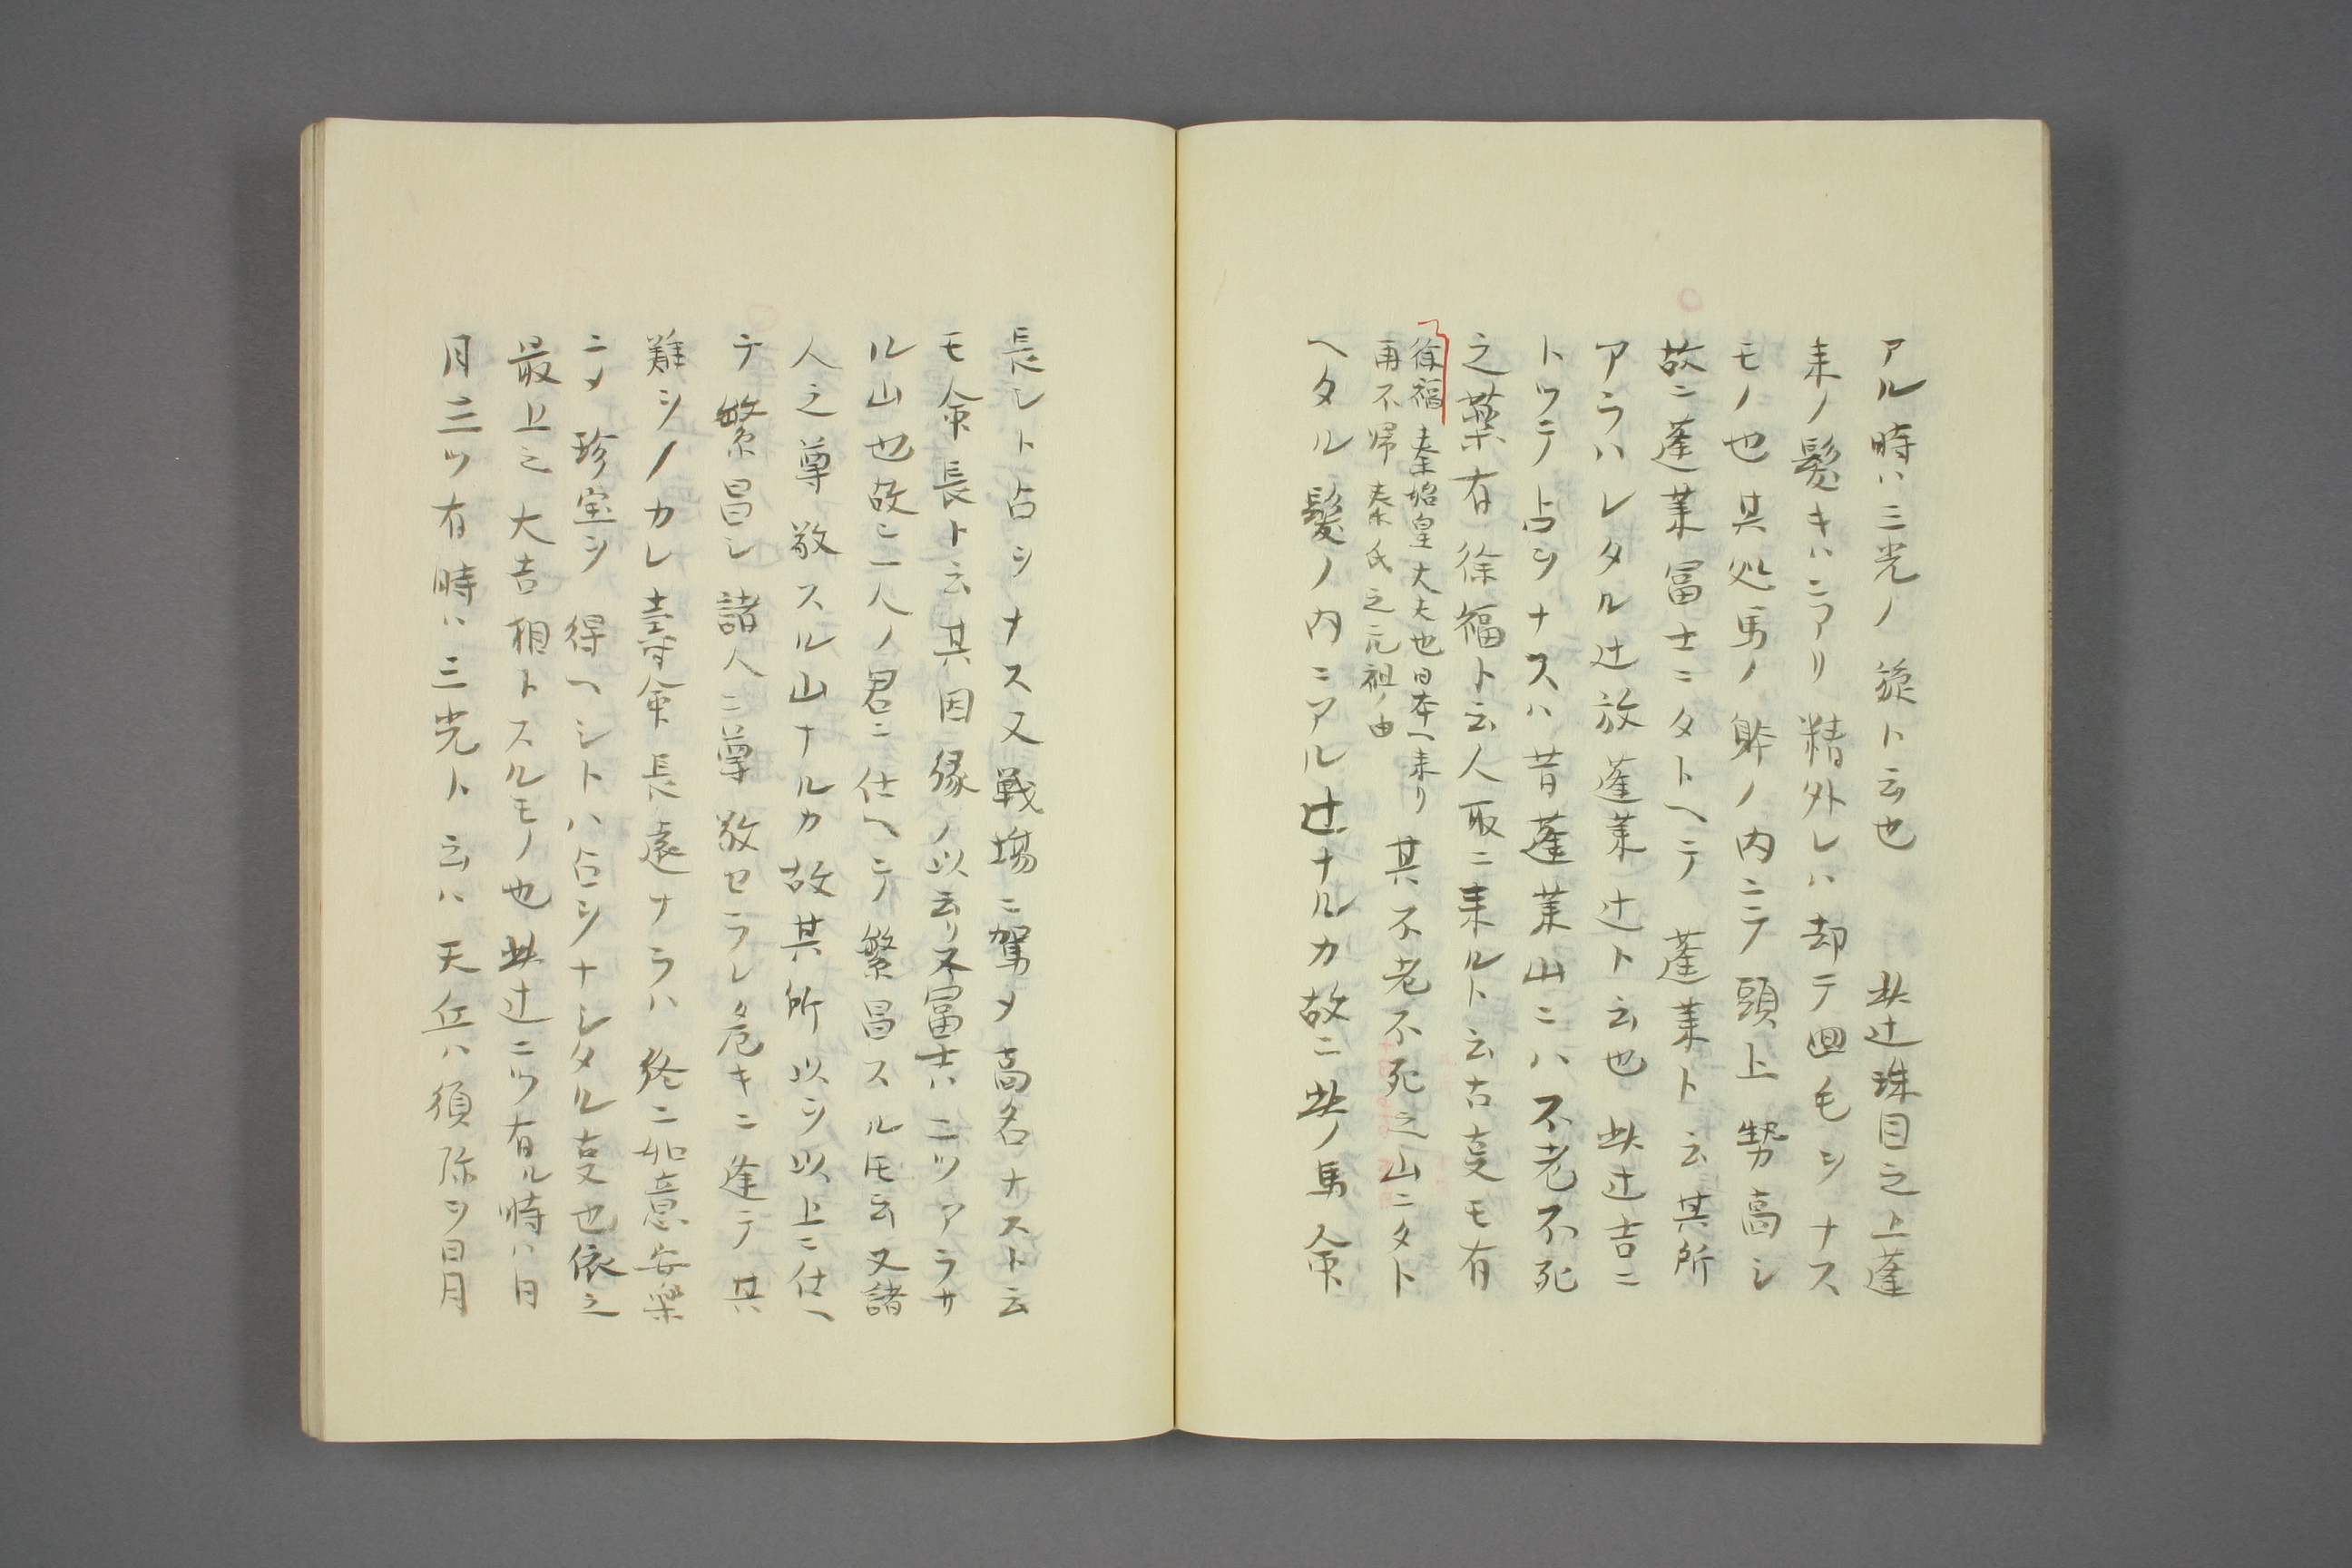 アル時ハ三光ノ旋ト云也　此辻珠目之上蓬
来ノ髪キハニアリ精外レハ却テ𢌞毛ヲナス
モノ也其処馬ノ躰ノ内ニテ頭上勢高シ
故ニ蓬莱冨士ニタトヘテ蓬莱ト云其所
アラハレタル辻故蓬莱辻ト云也此辻吉ニ
トツテ占ヲナスハ昔蓬莱山ニハ不老不死
之薬有徐福ト云人取ニ来ルト云古事モ有
徐福 秦始皇大夫也日本ヘ来リ
再不帰秦氏之元祖ノ由
其不老不死之山ニタト
ヘタル髪ノ内ニアル辻ナルカ故ニ此ノ馬命
長シト占ヲナス又戦場ニ駕メ高名ナスト云
モ命長ト云其因縁ノ以云リ又冨士ハ二ツアラサ
ル山也故ニ一人ノ君ニ仕ヘテ繁昌スルトモ云又諸
人之尊敬スル山ナルカ故其所以ヲ以上ニ仕ヘ
テ繁昌シ諸人ニ尊敬セラレ危キニ逢テ其
難ヲノカレ壽命長遠ナラハ終ニ如意安樂
ニメ珍宝ヲ得ヘシトハ占ヲナシタル事也依之
最上之大吉相トスルモノ也此辻二ツ有ル時ハ日
月三ツ有時ハ三光ト云ハ天丘ハ須弥ヲ日月